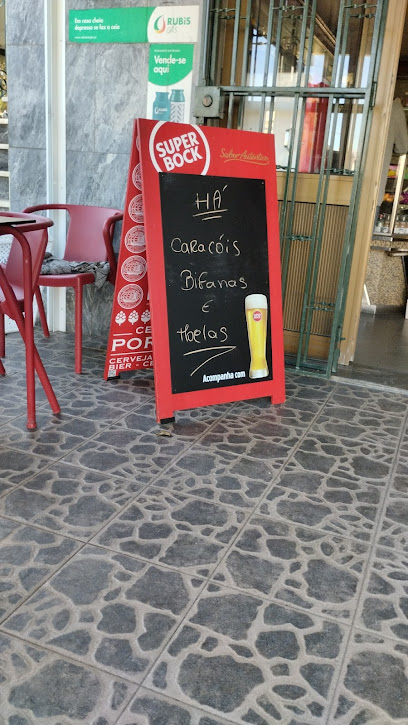 Em caso cheio
RUBiS
gás
Vende-se
aqui
SUPER
BOCK
Sabor Autêntico
HÁ
Caracóis
Bifanas
E
Moelas
SUPER
BOCK
Acompanha com
CE
POR
CERVEJA
BIER - CE